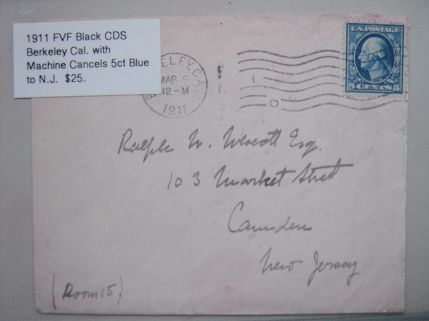 1911 FVF Black CDS
Berkeley Cal. with
Machine Cancels 5ct Blue
to N.J. $25.
BERKELEY, CAL.
MAR
12-M
1911
D
U.S. POSTAGE
5 CENTS 5
Ralph W. Wescott Esq.
103 Market Street
Camden
New Jersey
(Room 15)